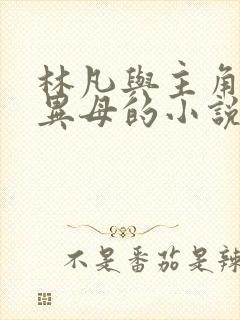 林凡與主角
異母的小說
不是番茄是辣